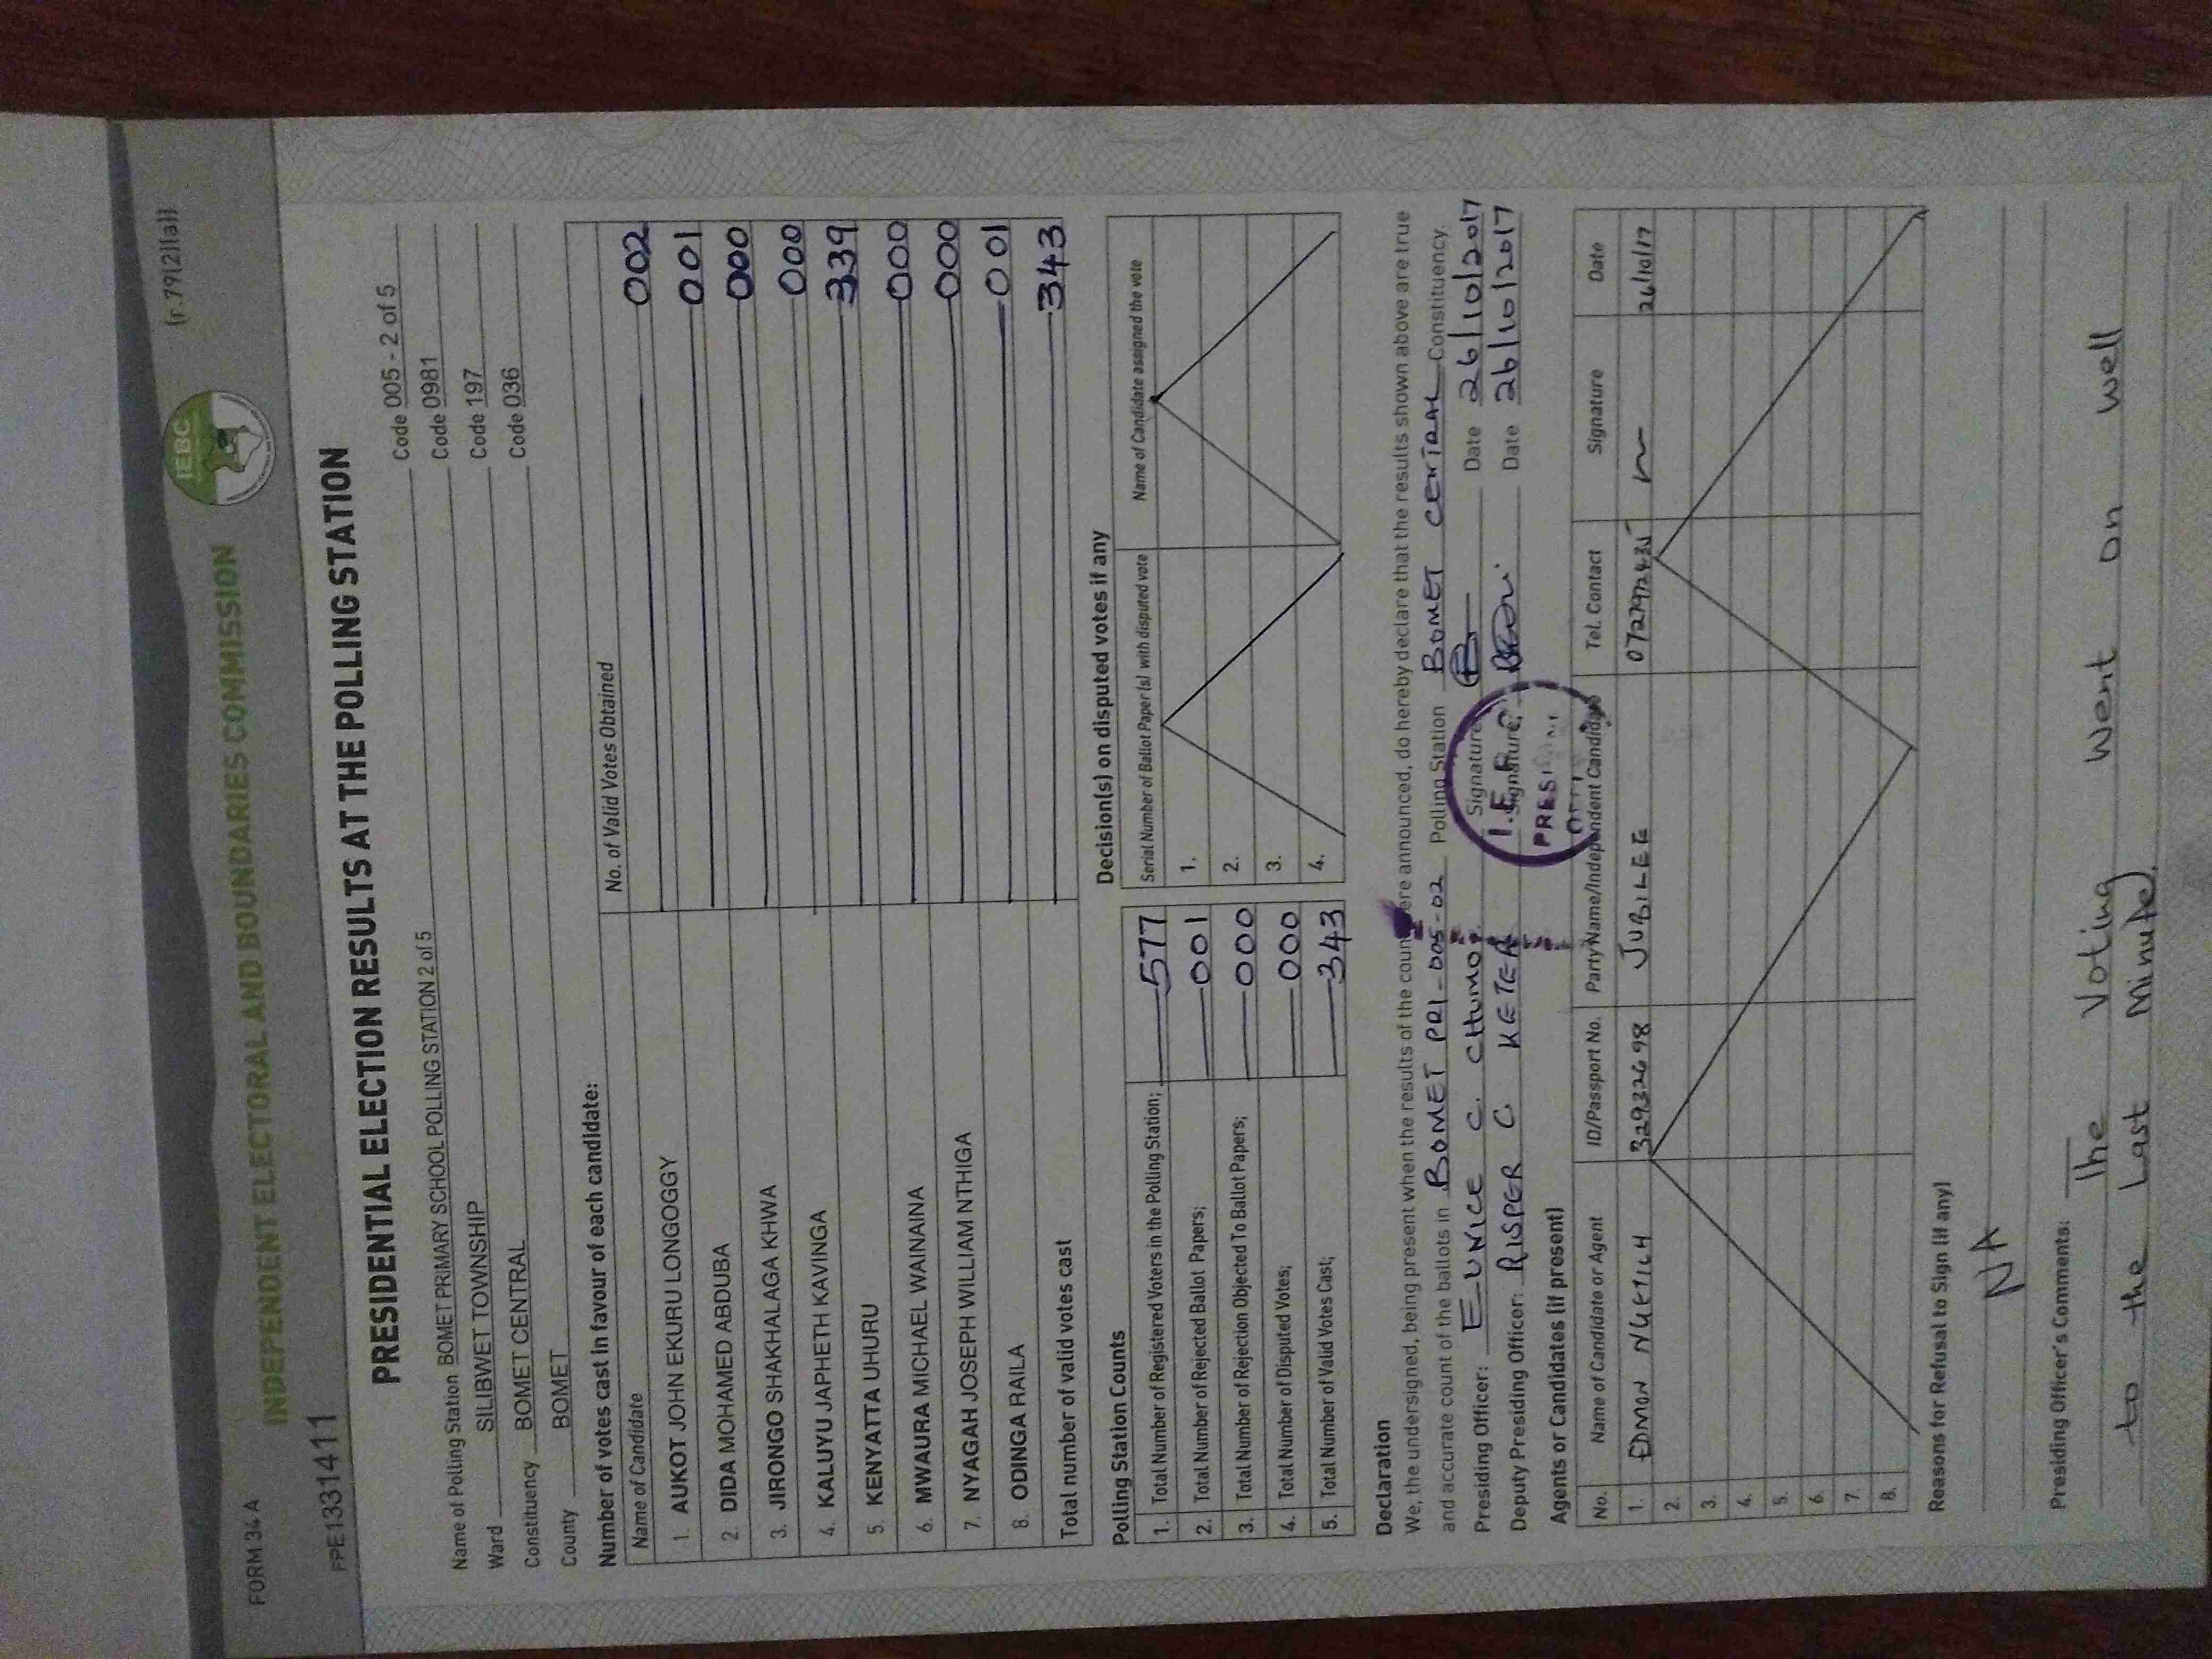 FORM 34 A
(r.79(2)(a))
IEBC
INDEPENDENT ELECTORAL AND BOUNDARIES COMMISSION
FPE1331411
PRESIDENTIAL ELECTION RESULTS AT THE POLLING STATION
Name of Polling Station BOMET PRIMARY SCHOOL POLLING STATION 2 of 5 Code 005 - 2 of 5
Ward SILIBWET TOWNSHIP Code 0981
Constituency BOMET CENTRAL Code 197
County BOMET Code 036
Number of votes cast in favour of each candidate:
Name of Candidate No. of Valid Votes Obtained
1. AUKOT JOHN EKURU LONGOGGY 002
2. DIDA MOHAMED ABDUBA 001
3. JIRONGO SHAKHALAGA KHWA 000
4. KALUYU JAPHETH KAVINGA 000
5. KENYATTA UHURU 339
6. MWAURA MICHAEL WAINAINA 000
7. NYAGAH JOSEPH WILLIAM NTHIGA 000
8. ODINGA RAILA 001
Total number of valid votes cast 343
Polling Station Counts
1. Total Number of Registered Voters in the Polling Station; 577
2. Total Number of Rejected Ballot Papers; 001
3. Total Number of Rejection Objected To Ballot Papers; 000
4. Total Number of Disputed Votes; 000
5. Total Number of Valid Votes Cast; 343
Decision(s) on disputed votes if any
Serial Number of Ballot Paper (s) with disputed vote Name of Candidate assigned the vote
1.
2.
3.
4.
Declaration
We, the undersigned, being present when the results of the count were announced, do hereby declare that the results shown above are true
and accurate count of the ballots in BOMET PRI-005-02 Polling Station BOMET CENTRAL Constituency.
Presiding Officer: EUNICE C. CHUMO Signature Date 26/10/2017
Deputy Presiding Officer: RISPER C. KETER Signature Date 26/10/2017
Agents or Candidates (if present)
No. Name of Candidate or Agent ID/Passport No. Party Name/Independent Candidate Tel. Contact Signature Date
1. EDMON NGETICH 32932698 JUBILEE 26/10/17
2.
3.
4.
5.
6.
7.
8.
Reasons for Refusal to Sign (if any)
NA
Presiding Officer's Comments: The Voting Went on well
to the Last Minute.